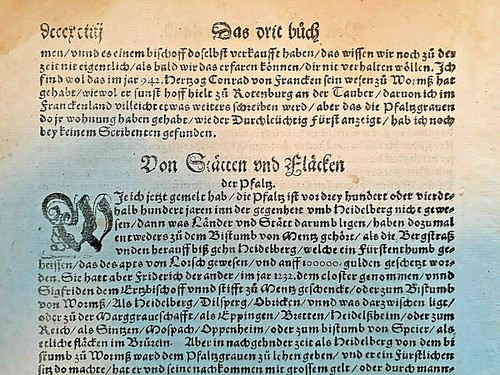 dccccxciiij Das drit bůch
men/vnnd es einem bischoff doselbst verkaufft haben/das wissen wir noch zů der
zeit nit eigentlich/als bald wir das erfaren können/dir nit verhalten wöllen. Ich
find wol das im jar 942. Hertzog Conrad von Francken sein wesen zů Wormß hat
gehabt/wiewol er sunst hoff hielt zů Rotenburg an der Tauber/darvon ich im
Franckenland villeicht etwas weiters schreiben werd/aber das die Pfaltzgrauen
do jr wohnung haben gehabt/wie der Durchlüchtig Fürst anzeigt/hab ich noch
bey keinem Scribenten gefunden.
Von Stätten vnd Fläcken
der Pfaltz.
WJe ich jetzt gemelt hab/die Pfaltz ist vor drey hundert oder vierdt-
halb hundert jaren inn der gegenheit vmb Heidelberg nicht gewe
sen/dann was Länder vnd Stätt darumb ligen/haben dozumal
entweders zů dem Bistumb von Mentz gehört/als die Bergstraß
vnden herauff biß gehn Heidelberg/welche ein Fürstenthumb ge-
heissen/das des apts von Lorsch gewesen/vnd auff 100000 gulden geschetzt wor-
den. Sie hatt aber Friderich der ander/im jar 1232. dem closter genommen/vnnd
Sigfriden dem Ertzbischoff vnnd stifft zů Mentz geschenckt/oder zům Bistumb
von Wormß/Als Heidelberg/Dilsperg/Obricken/vnnd was darzwischen lige/
oder zů der Marggrauschafft/als Eppingen/Bretten/Heidelßheim/oder zům
Reich/als Sintzen/Mospach/Oppenheim/oder zům bistumb von Speier/als
etliche fläcken im Brüzein. Aber in nachgehnder zeit als Heidelberg von dem bi
stumb zů Wormß ward dem Pfaltzgrauen zů lehen geben/vnd er ein Fürstlichen
sitz do machte/hat er vnd seine nachkommen mit grossem gelt/oder durch mann-